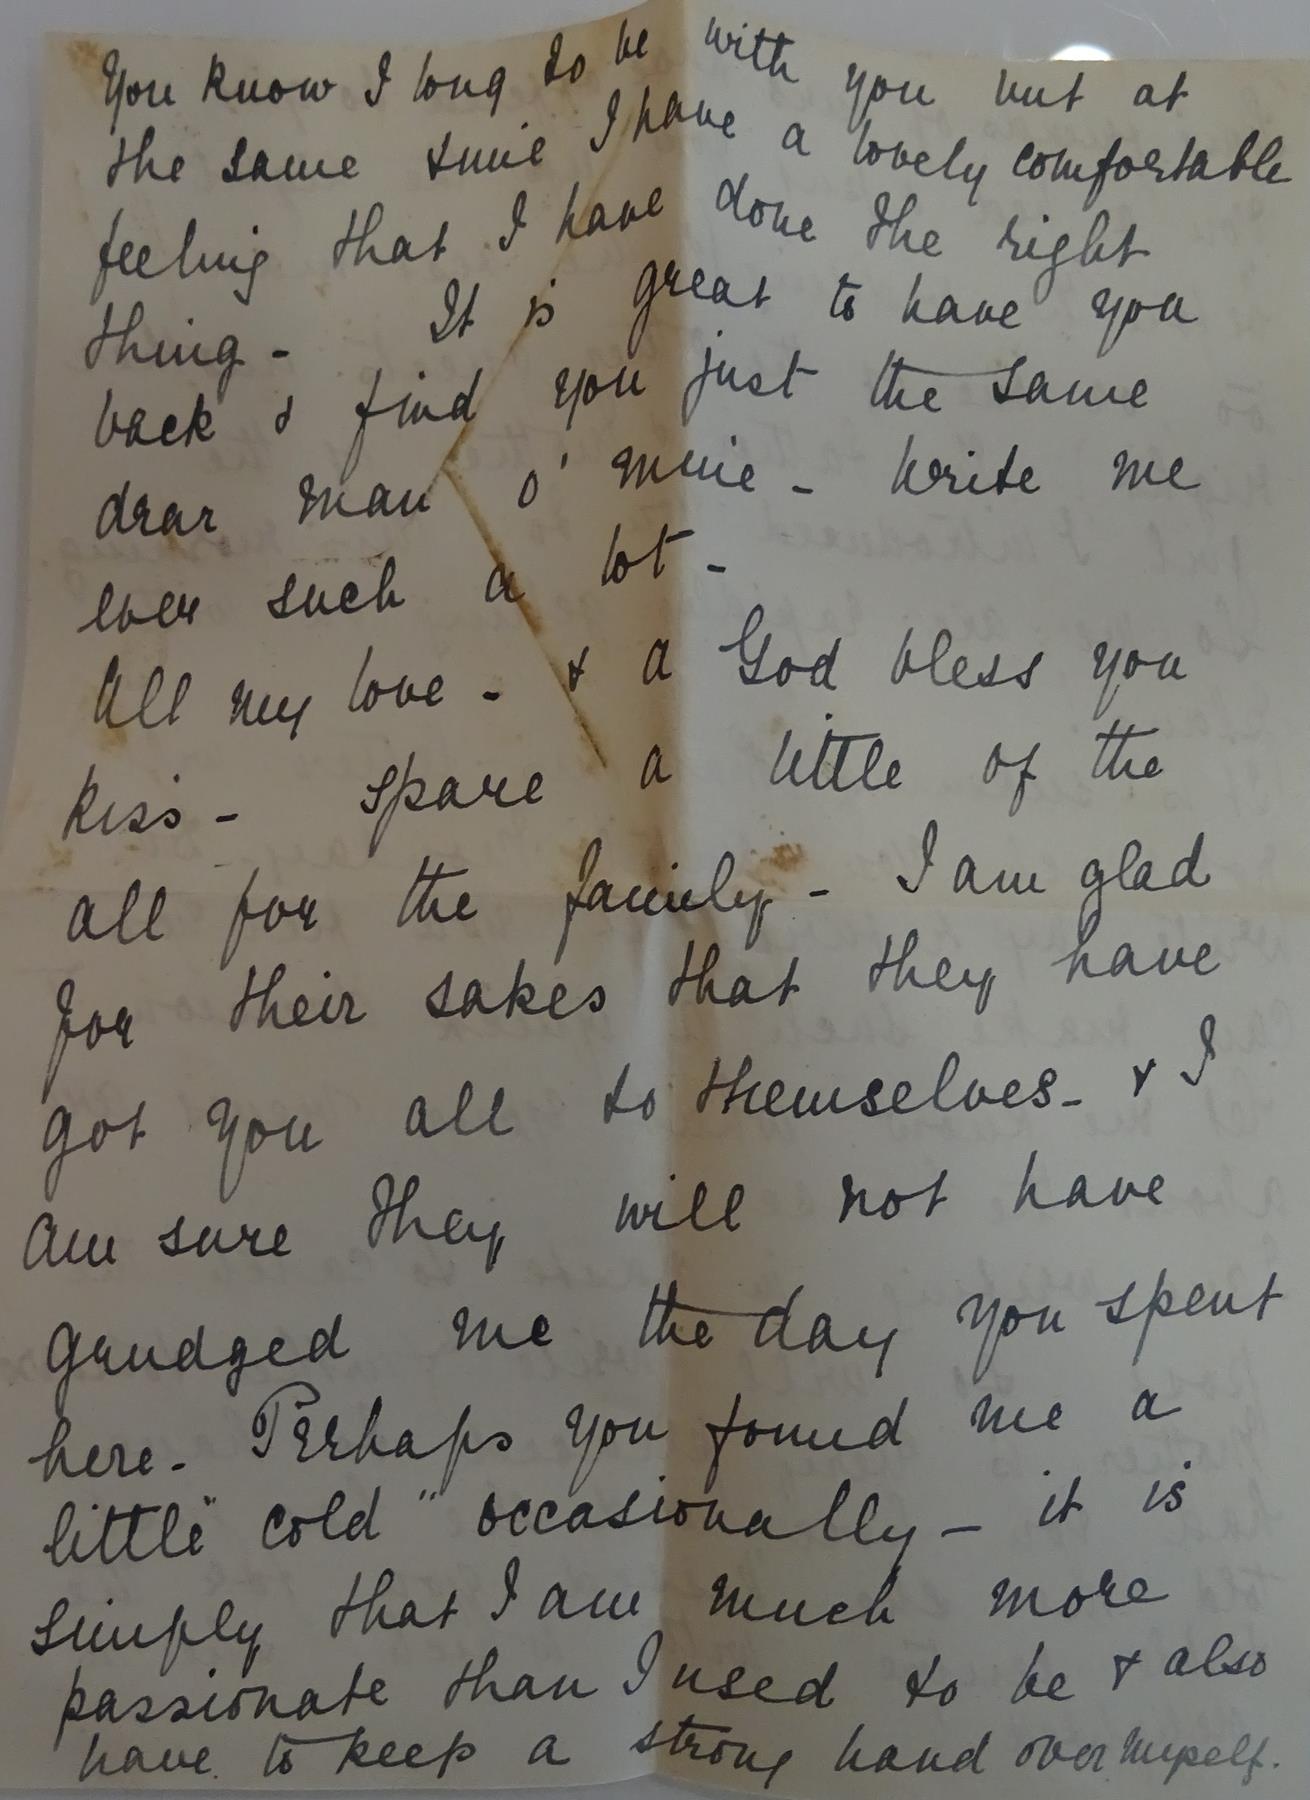 You know I long to be with you but at
the same time I have a lovely comfortable
feeling that I have done the right
thing - It is great to have you
back & find you just the same
dear man o' mine - Write me
ever such a lot -
All my love - & a God bless you
kiss - Spare a little of the
all for the family - I am glad
for their sakes that they have
got you all to themselves - & I
am sure they will not have
grudged me the day you spent
here - Perhaps you found me a
little "cold" occasionally - it is
simply that I am much more
passionate than I used to be & also
have to keep a strong hand over myself.